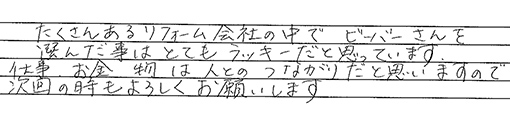 たくさんあるリフォーム会社の中で ビーバーさんを
選んだ事はとてもラッキーだと思っています.
仕事.お金 物は人とのつながりだと思いますので
次回の時もよろしくお願いします